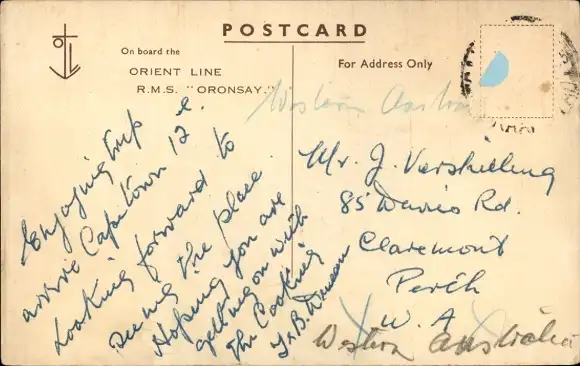 POSTCARD
On board the
ORIENT LINE
R.M.S. "ORONSAY."
For Address Only
Enjoying trip
arrive Capetown 12
Looking forward to
seeing the place.
Hoping you are
getting on with
the Cooking
Western Austra
Mr. J. Verschelling
85 Davies Rd.
Claremont
Perth
W. A
Western Australia